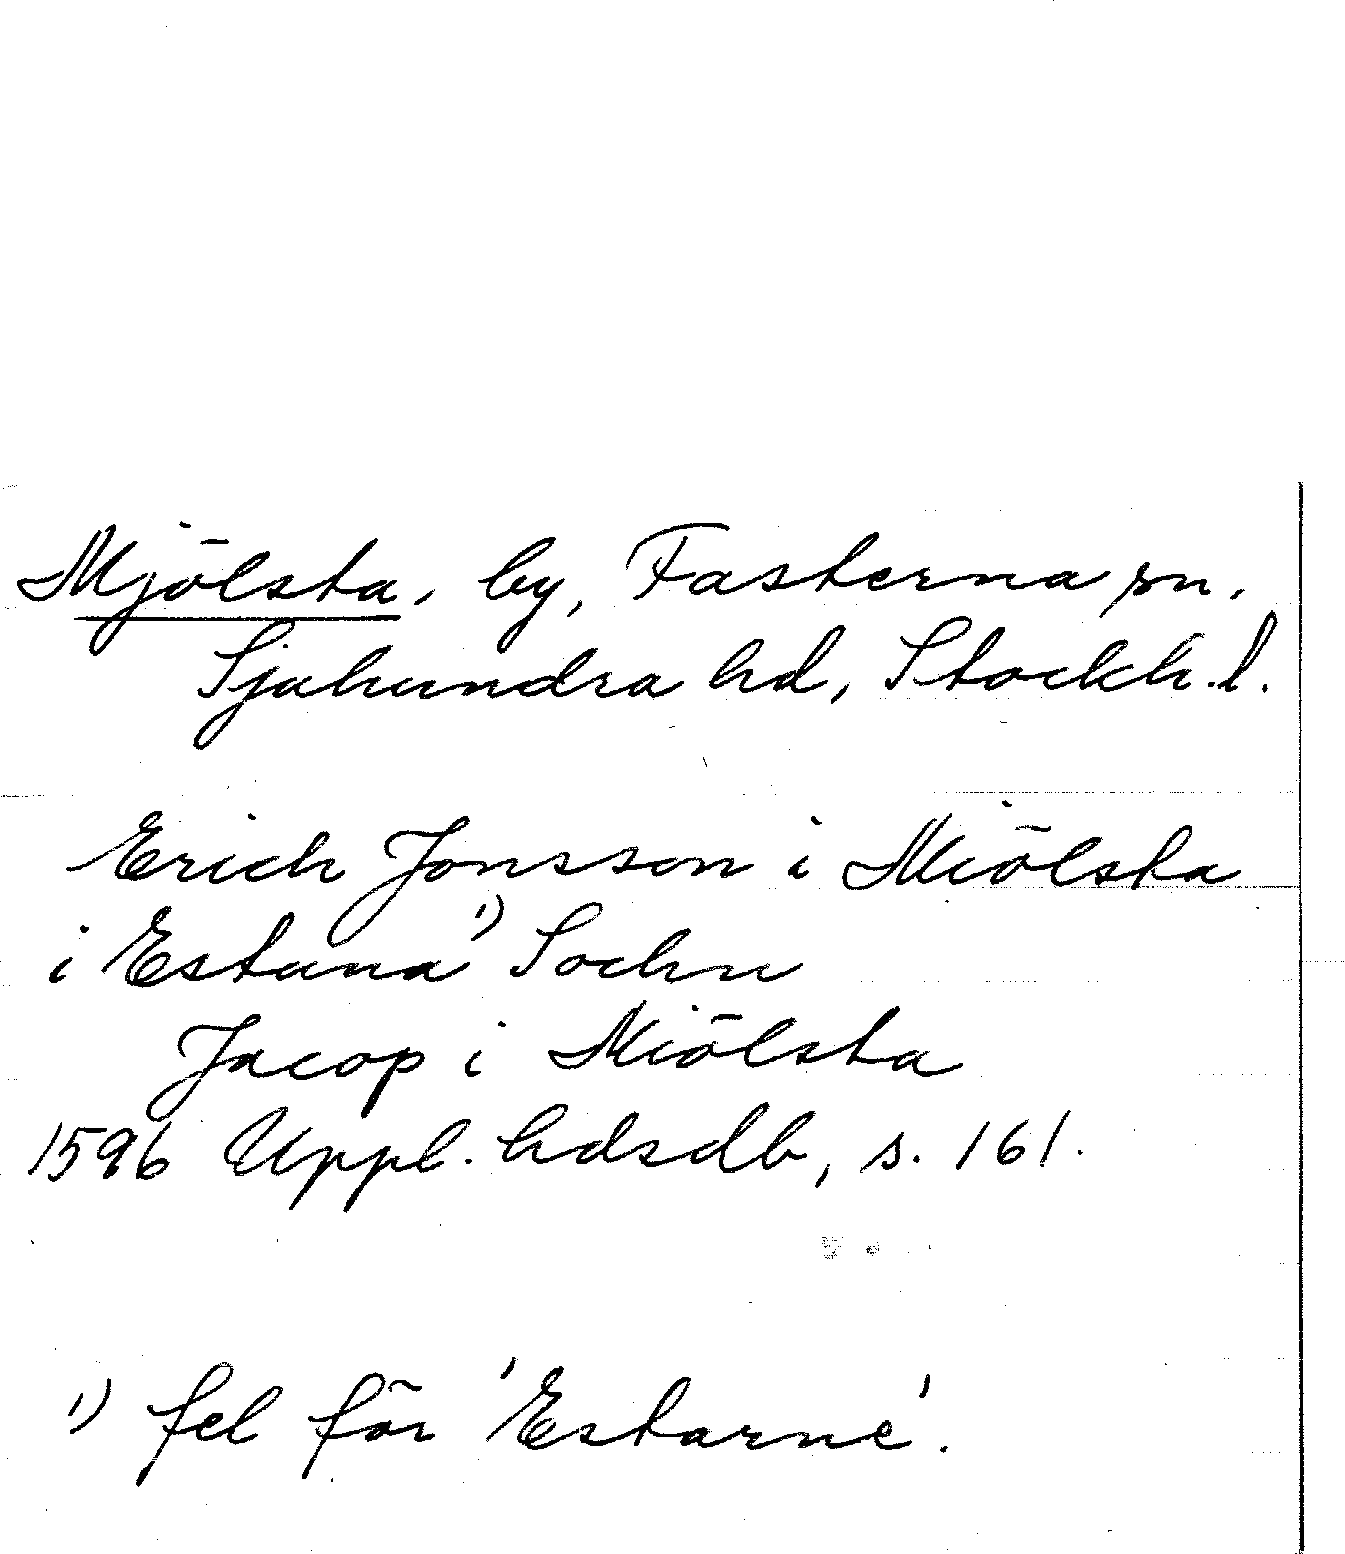 Mjölsta, by, Fasterna sn.
Sjuhundra hd, Stockh. l.
Erich Jonsson i Miölsta
i Estuna¹⁾ Sochn
Jacop i Miölsta
1596 Uppl. hdsdb, s. 161.
¹⁾ fel för 'Estarne'.